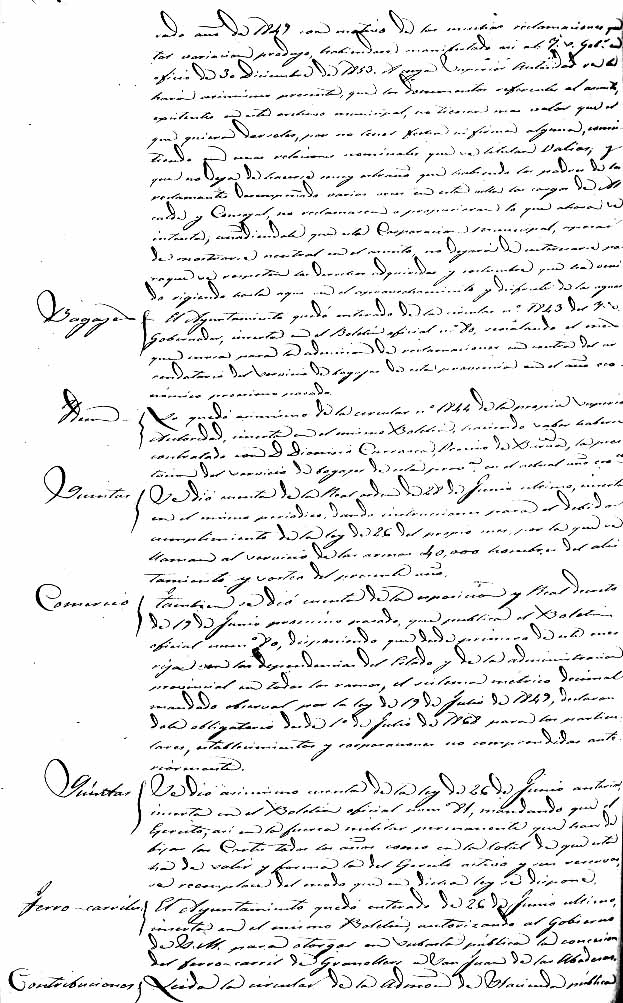 cado año de 1849 con motivo de las muchas reclamaciones que
tal variacion produjo, habiendose manifestado asi al Sr. Gobr. en
oficio de 30 Diciembre de 1853. A cuya Superior Autoridad se le
hará asimismo presente, que los documentos referentes al asunto,
existentes en este archivo municipal, no tienen mas valor que el
que quiera darseles, por no tener fecha ni firma alguna, consis
tiendo en unas relaciones nominales que se titulan Dulas, y
que no deja de hacerse muy estraño que habiendo los padres de los
reclamantes desempeñado varias veces en esta villa los cargos de Al
calde y Concejal, no reclamasen o propusieran lo que ahora se
intenta, añadiendole que esta Corporacion municipal, apesar
de mostrarse neutral en el asunto, no dejará de interesarse pa
raque se respeten los derechos adquiridos y costumbre que ha veni
do rigiendo hasta aqui en el aprovechamiento y disfrute de las aguas
Bagajes El Ayuntamiento quedó enterado de la circular nº 1843 del Sr.
Gobernador, inserta en el Boletin oficial nº 80, señalando el modo
que envia para la admision de reclamaciones en contra del ar
rendatario del servicio de bagajes de esta provincia en el año eco
nómico procsimo pasado.
Idem Se quedó asimismo de la circular nº 1844 de la propia Superior
Autoridad, inserta en el mismo Boletin, haciendo saber haberse
contratado con D. Dionisio Carrasco, Vecino de la pres
tacion del servicio de bagajes de esta prova. en el actual año eco
Quintas Se dió cuenta de la Real orden de 28 de Junio ultimo, inserta
en el mismo periodico, dando instrucciones para el debido
cumplimiento de la ley de 26 del propio mes, por la que se
llaman al servicio de las armas 40,000 hombres del alis
tamiento y sorteo del presente año.
Comercio Tambien se dió cuenta de la esposicion y Real decreto
de 19 de Junio procsimo pasado, que publica el Boletin
oficial numo. 80, disponiendo que desde primero de este mes
rija en las dependencias del Estado y de la administracion
provincial en todos los ramos, el sistema métrico decimal
mandado observar por la ley de 19 de Julio de 1849, declaran
dole obligatorio desde 1º de Julio de 1868 para los particu
lares, establecimientos y corporaciones no comprendidas ante
riormente.
Quintas Se dió asimismo cuenta de la ley de 26 de Junio anterior,
inserta en el Boletin oficial num. 81, mandando que el
Egercito, asi en la fuerza militar permanente que han de
fijar las Cortes todos los años como en la total de que esta
ha de salir y forma la del Egercito activo y sus reservas,
se reemplace del modo que en dicha ley se dispone.
Ferro-carriles El Ayuntamiento quedó enterado de 26 de Junio ultimo,
inserta en el mismo Boletin, autorizando al Gobierno
de S.M. para otorgar en subasta pública la concesion
del ferro-carril de Granollers a San Juan de las Abadesas.
Contribuciones Leida la circular de la Admon. de Hacienda pública